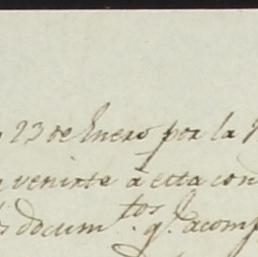 23 de Enero por la
venirte à esta con
docum.tos q.e acomp